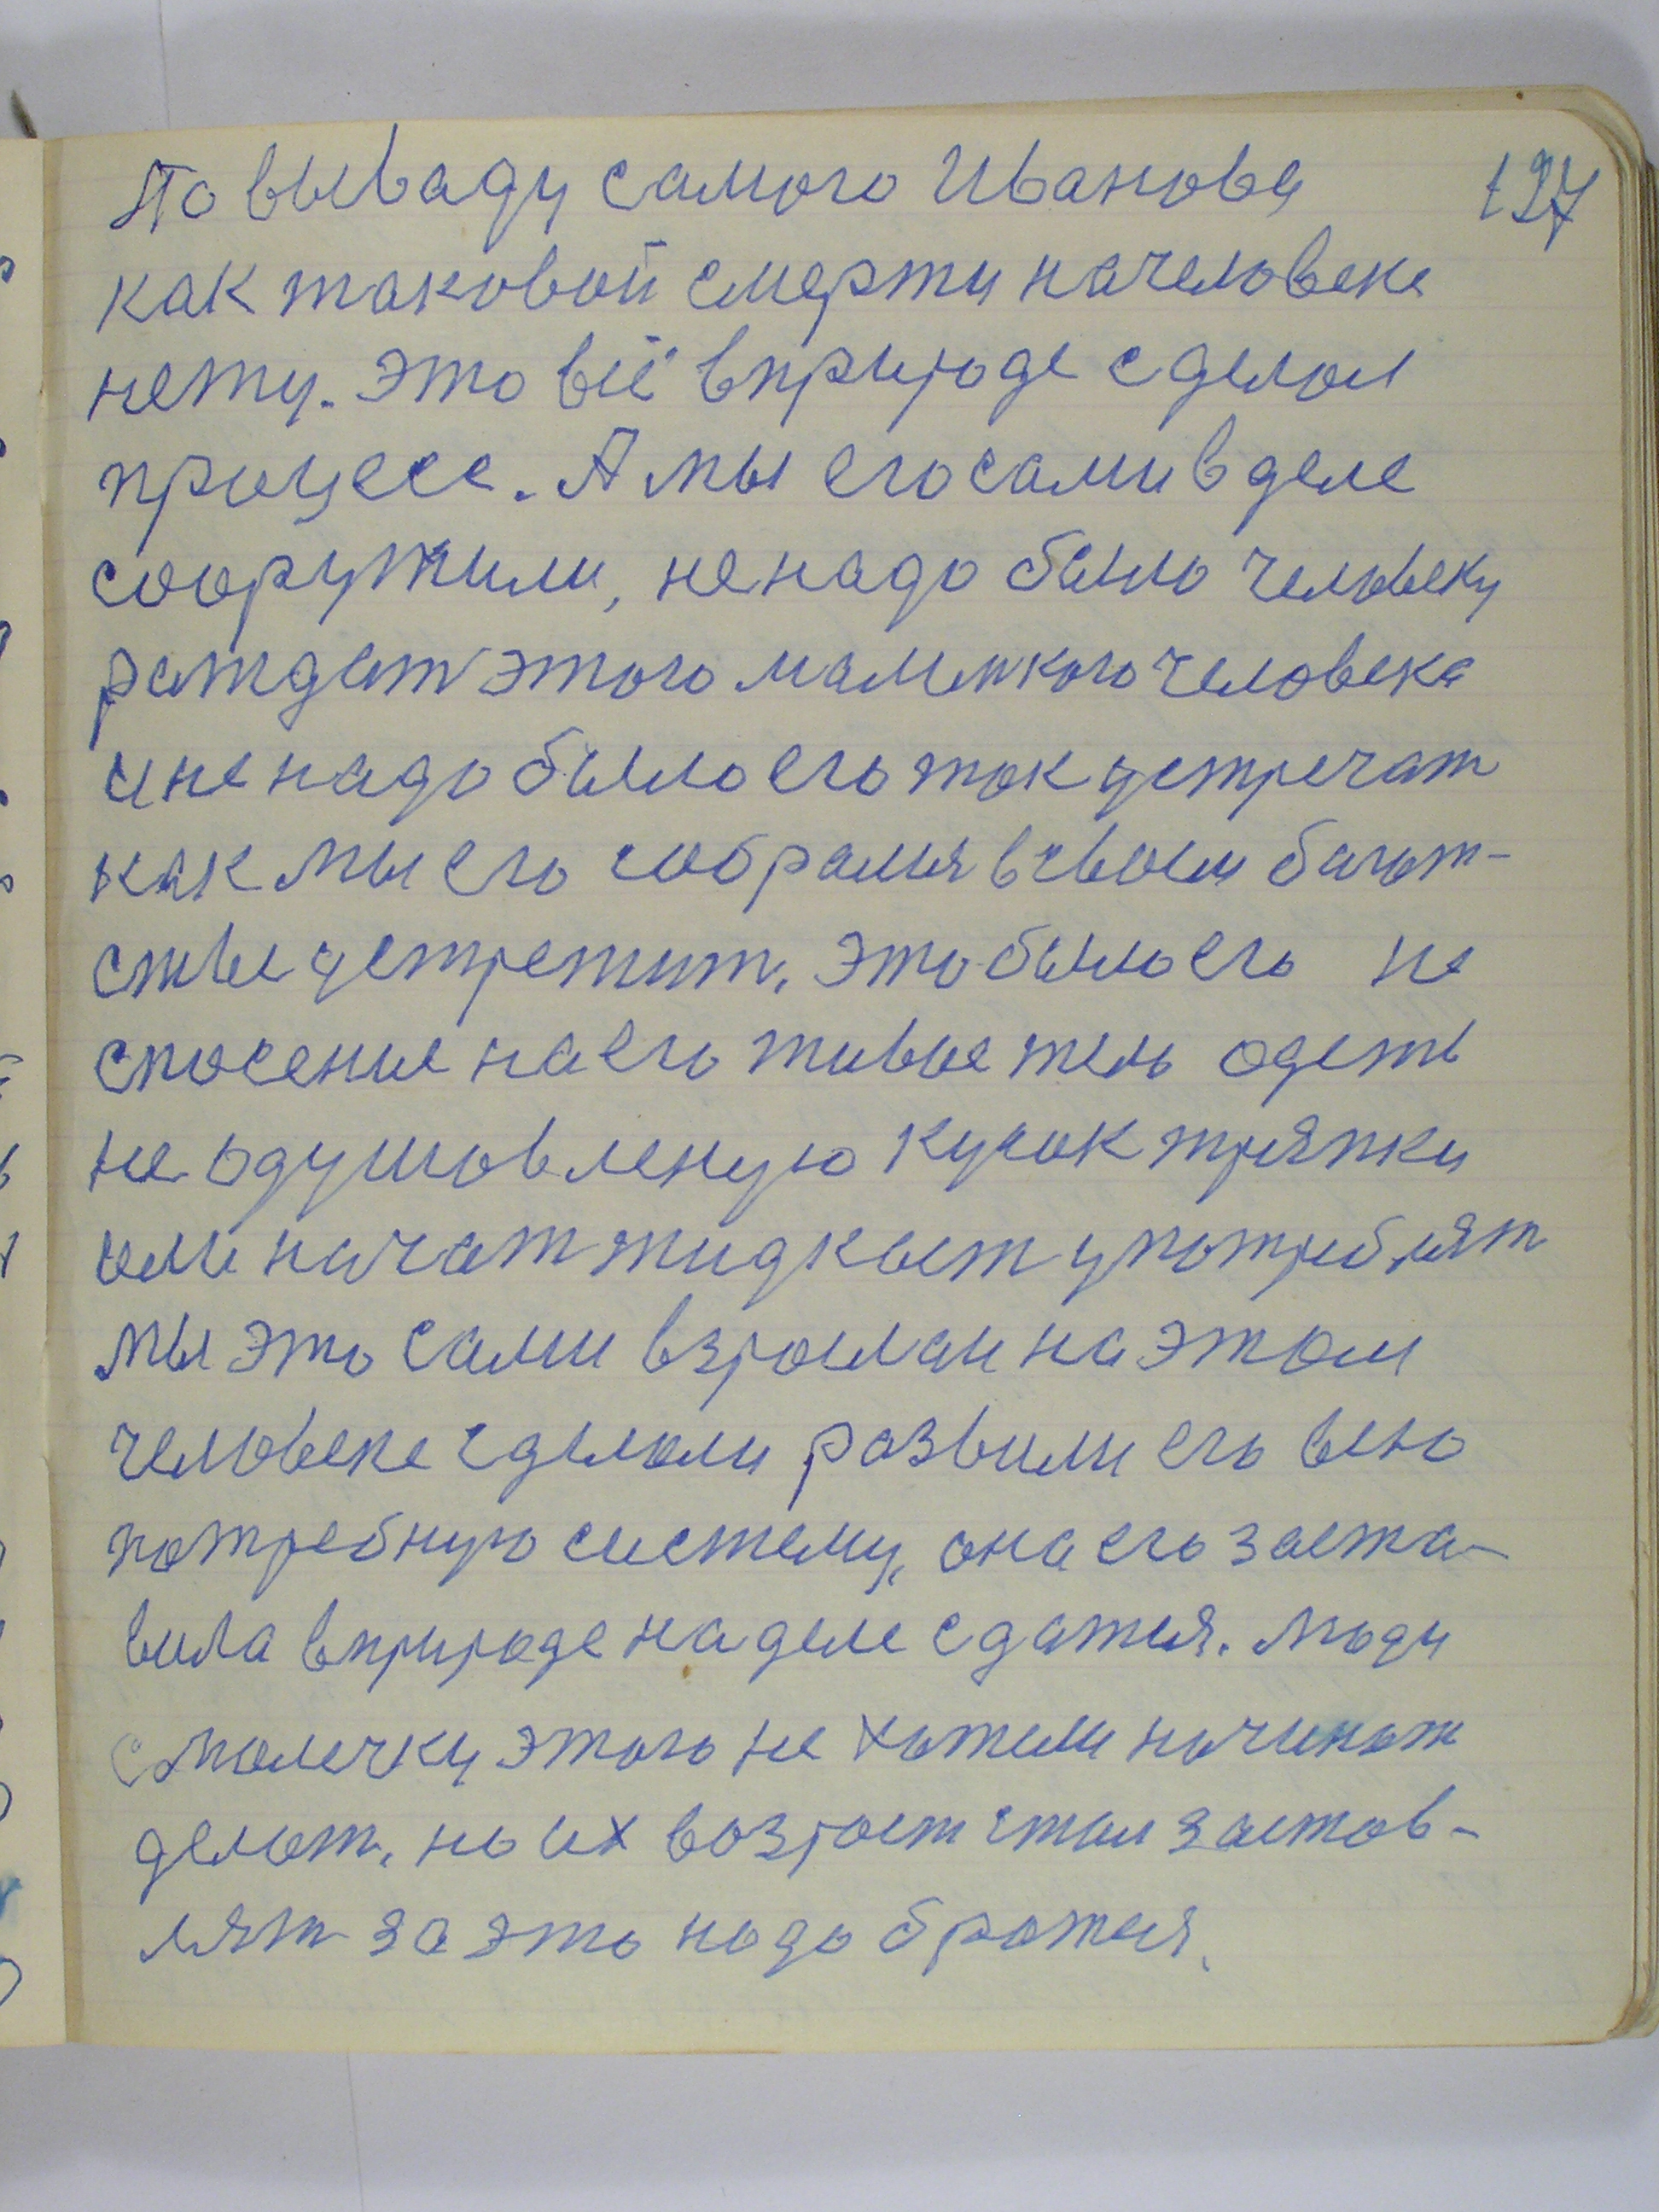 По вываду самого Иванова 127
как таковой смерти начеловеке
нету. Это всё вприроде сделал
процесс. А мы его сами в деле
сооружили, ненадо было человеку
раждат этого маленкого человека
иненадо было его так устречат
как мы его собралися всвоем багат-
стве устретит. Это было его не
спосение наего живое тело одеть
не одушовленую кусок тряпки
или начат жидкост употреблят
мы это сами взрослаи наэтом
человеке сделали развили его всю
потребную систему, она его заста-
вила вприроде наделе сдатися. Люди
смолечку этого не хотели начинат
делат. но их возраст стал застав-
лят за это надо братися.